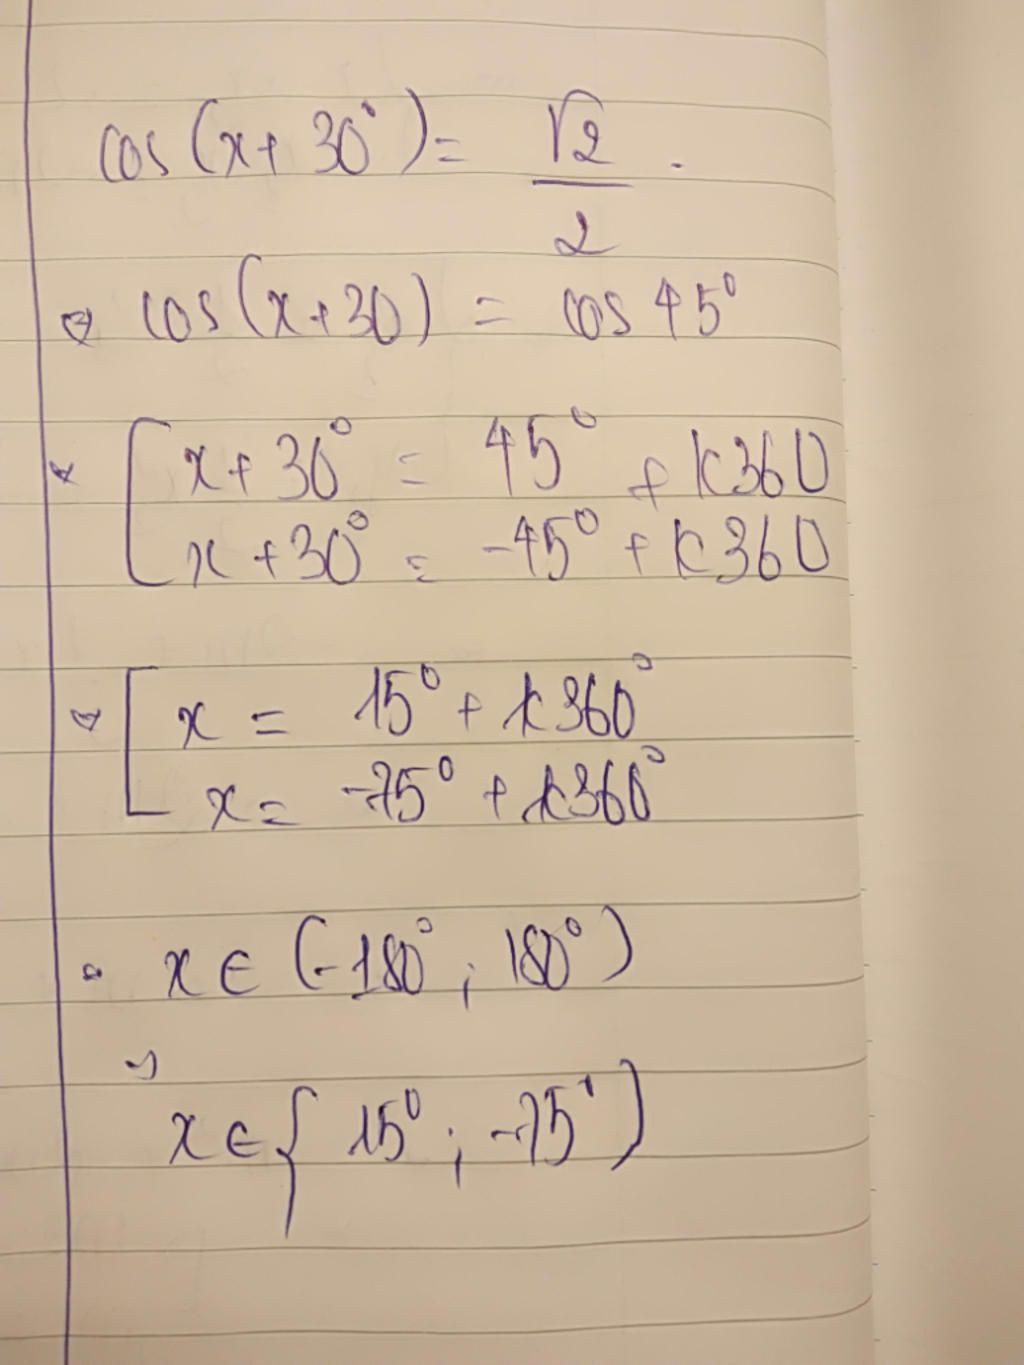 cos(x+30°) = √2/2 .
⇔ cos(x+30) = cos 45°
⇔ [ x+30° = 45° + k360
x+30° = -45° + k360
⇔ [ x = 15° + k360°
x = -75° + k360°
x ∈ (-180° ; 180°)
⇒
x ∈ { 15° ; -75° )